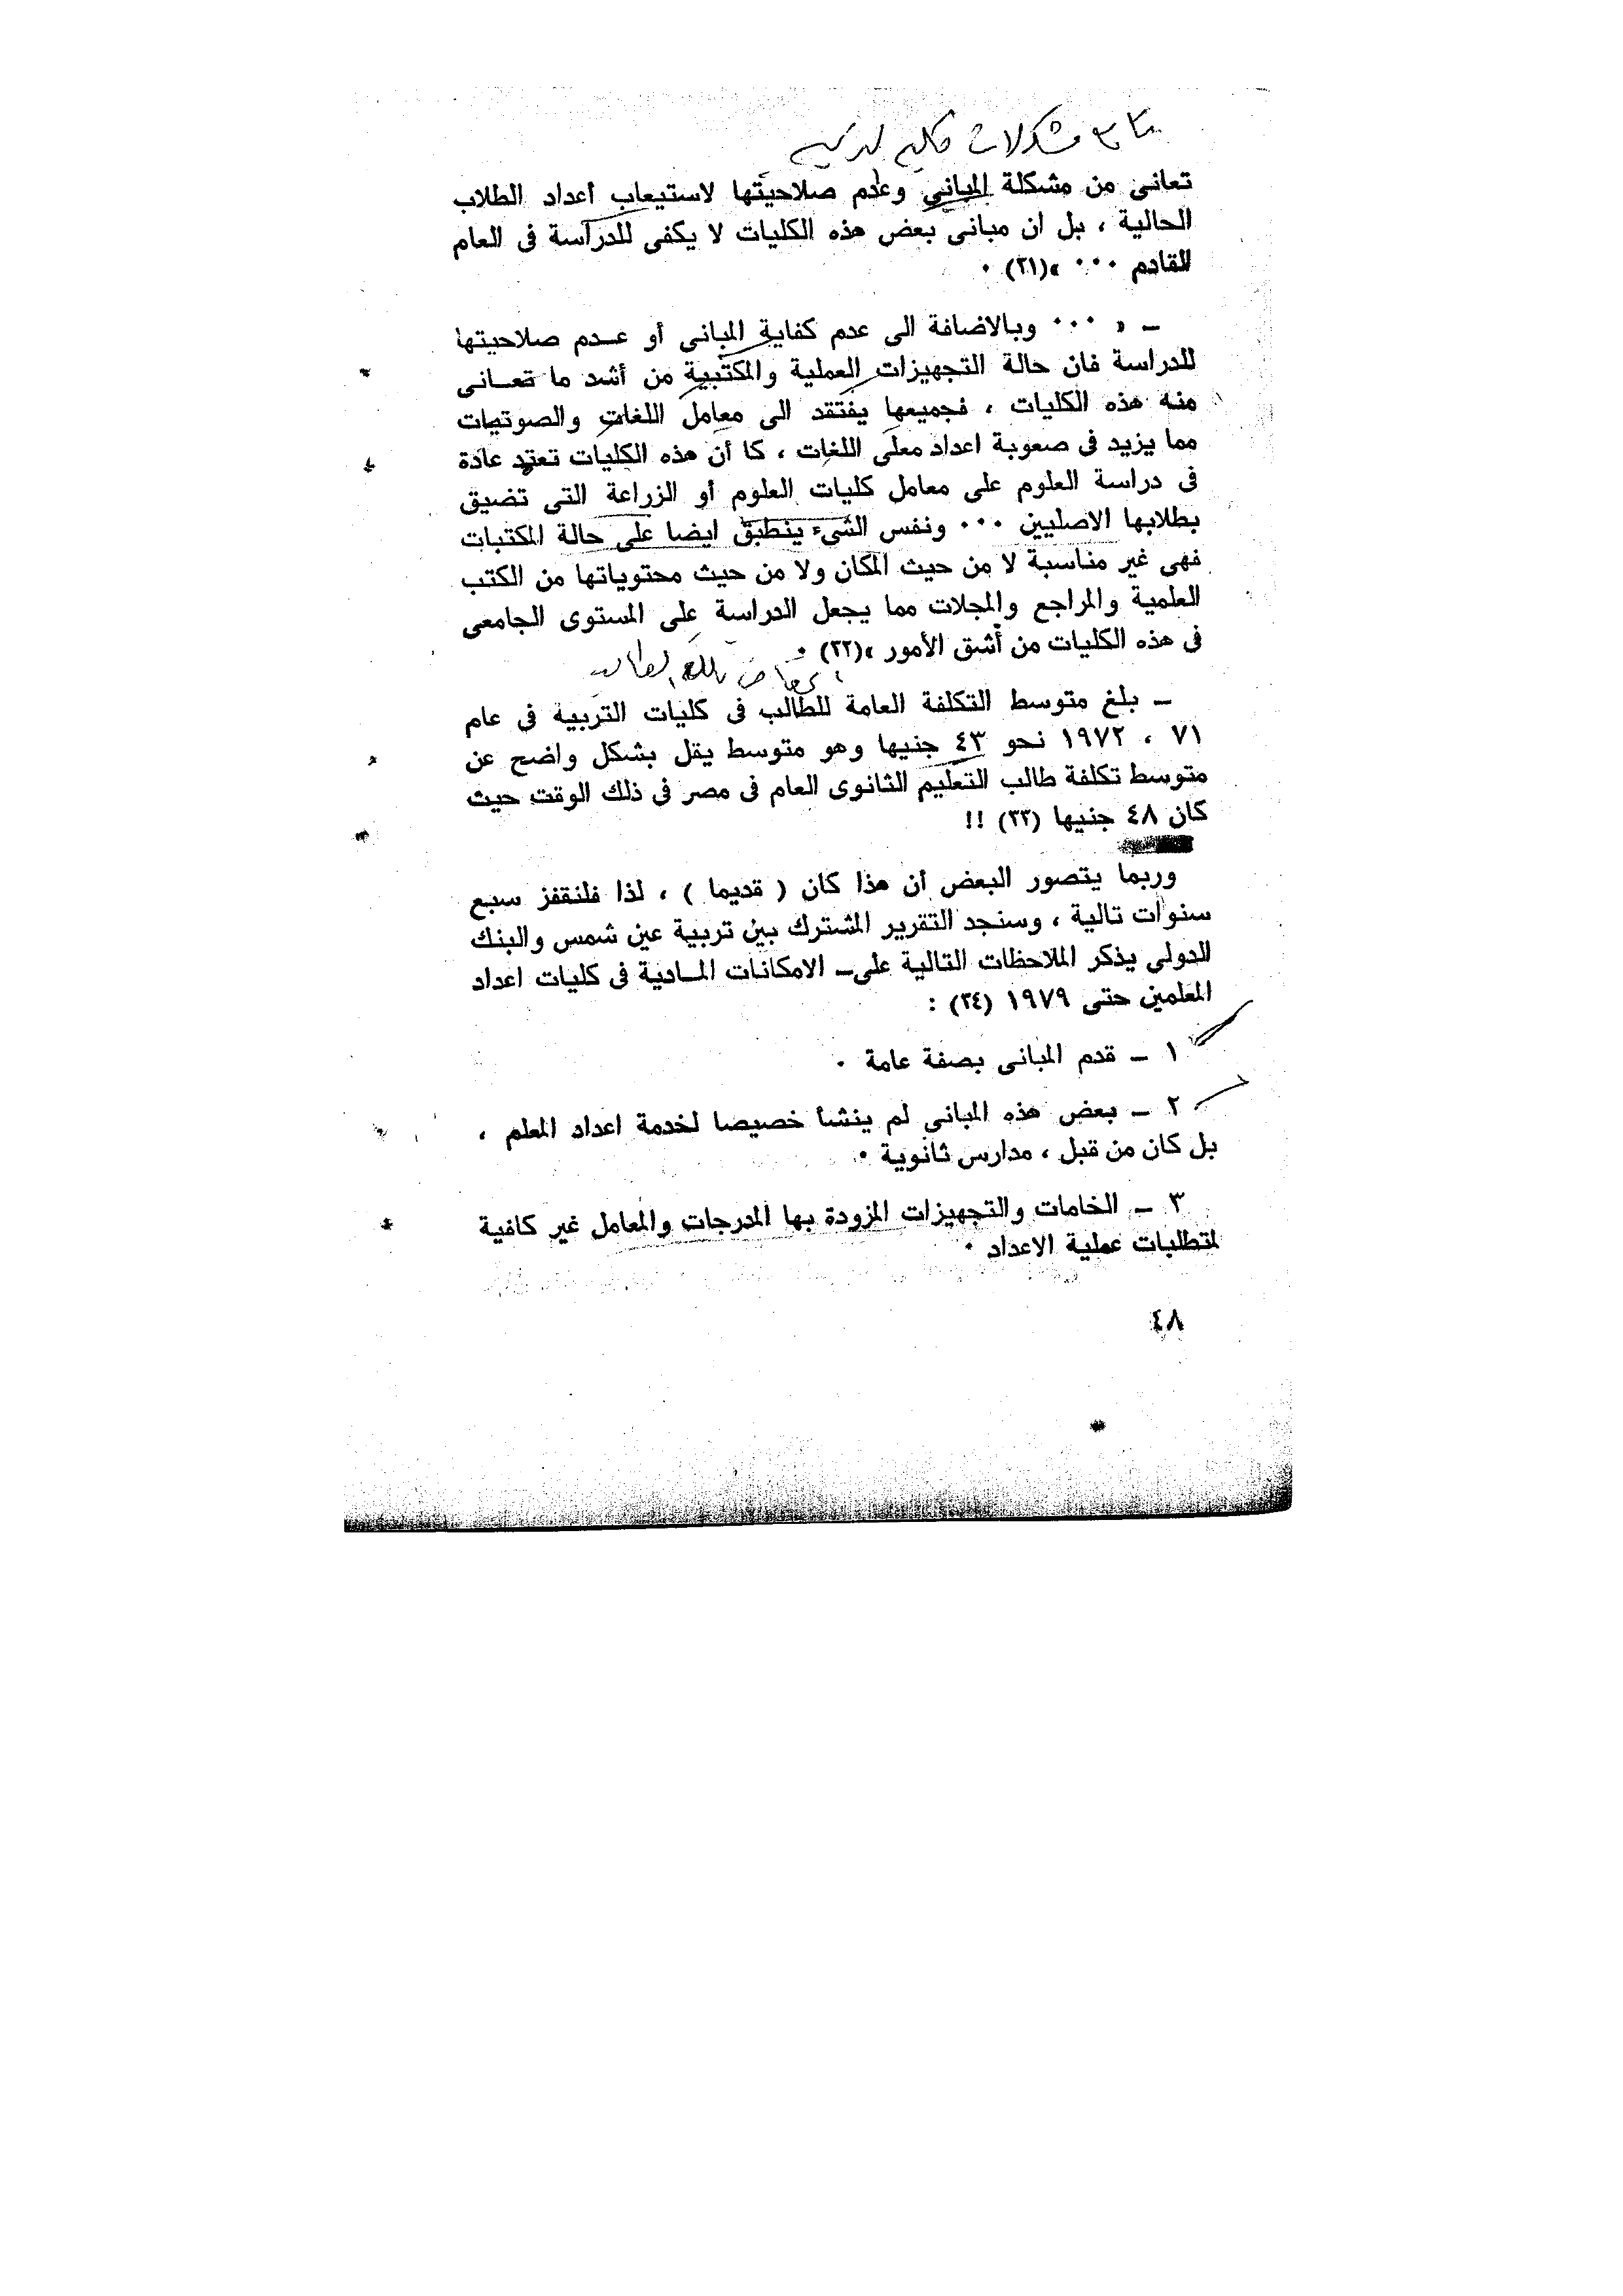 مشكلات كلية التربية
تعانى من مشكلة المبانى وعدم صلاحيتها لاستيعاب أعداد الطلاب
الحالية ، بل ان مبانى بعض هذه الكليات لا يكفى للدراسة فى العام
القادم ٠٠٠ »(٣١) ٠
ـ « ٠٠٠ وبالاضافة الى عدم كفاية المبانى أو عـدم صلاحيتها
للدراسة فان حالة التجهيزات العملية والمكتبية من أشد ما تعـانى
منه هذه الكليات ، فجميعها يفتقد الى معامل اللغات والصوتيات
مما يزيد فى صعوبة اعداد معلمى اللغات ، كما أن هذه الكليات تعتمد عادة
فى دراسة العلوم على معامل كليات العلوم أو الزراعة التى تضيق
بطلابها الاصليين ٠٠٠ ونفس الشىء ينطبق ايضا على حالة المكتبات
فهى غير مناسبة لا من حيث المكان ولا من حيث محتوياتها من الكتب
العلمية والمراجع والمجلات مما يجعل الدراسة على المستوى الجامعى
فى هذه الكليات من أشق الأمور »(٣٢) ٠
ـ بلغ متوسط التكلفة العامة للطالب فى كليات التربية فى عام
٧١ ، ١٩٧٢ نحو ٤٣ جنيها وهو متوسط يقل بشكل واضح عن
متوسط تكلفة طالب التعليم الثانوى العام فى مصر فى ذلك الوقت حيث
كان ٤٨ جنيها (٣٣) !!
وربما يتصور البعض أن هذا كان ( قديما ) ، لذا فلنقفز سبع
سنوات تالية ، وسنجد التقرير المشترك بين تربية عين شمس والبنك
الدولى يذكر الملاحظات التالية على ـ الامكانات المـادية فى كليات اعداد
المعلمين حتى ١٩٧٩ (٣٤) :
١ ـ قدم المبانى بصفة عامة ٠
٢ ـ بعض هذه المبانى لم ينشأ خصيصا لخدمة اعداد المعلم ،
بل كان من قبل ، مدارس ثانوية ٠
٣ ـ الخامات والتجهيزات المزودة بها المدرجات والمعامل غير كافية
لمتطلبات عملية الاعداد ٠
٤٨